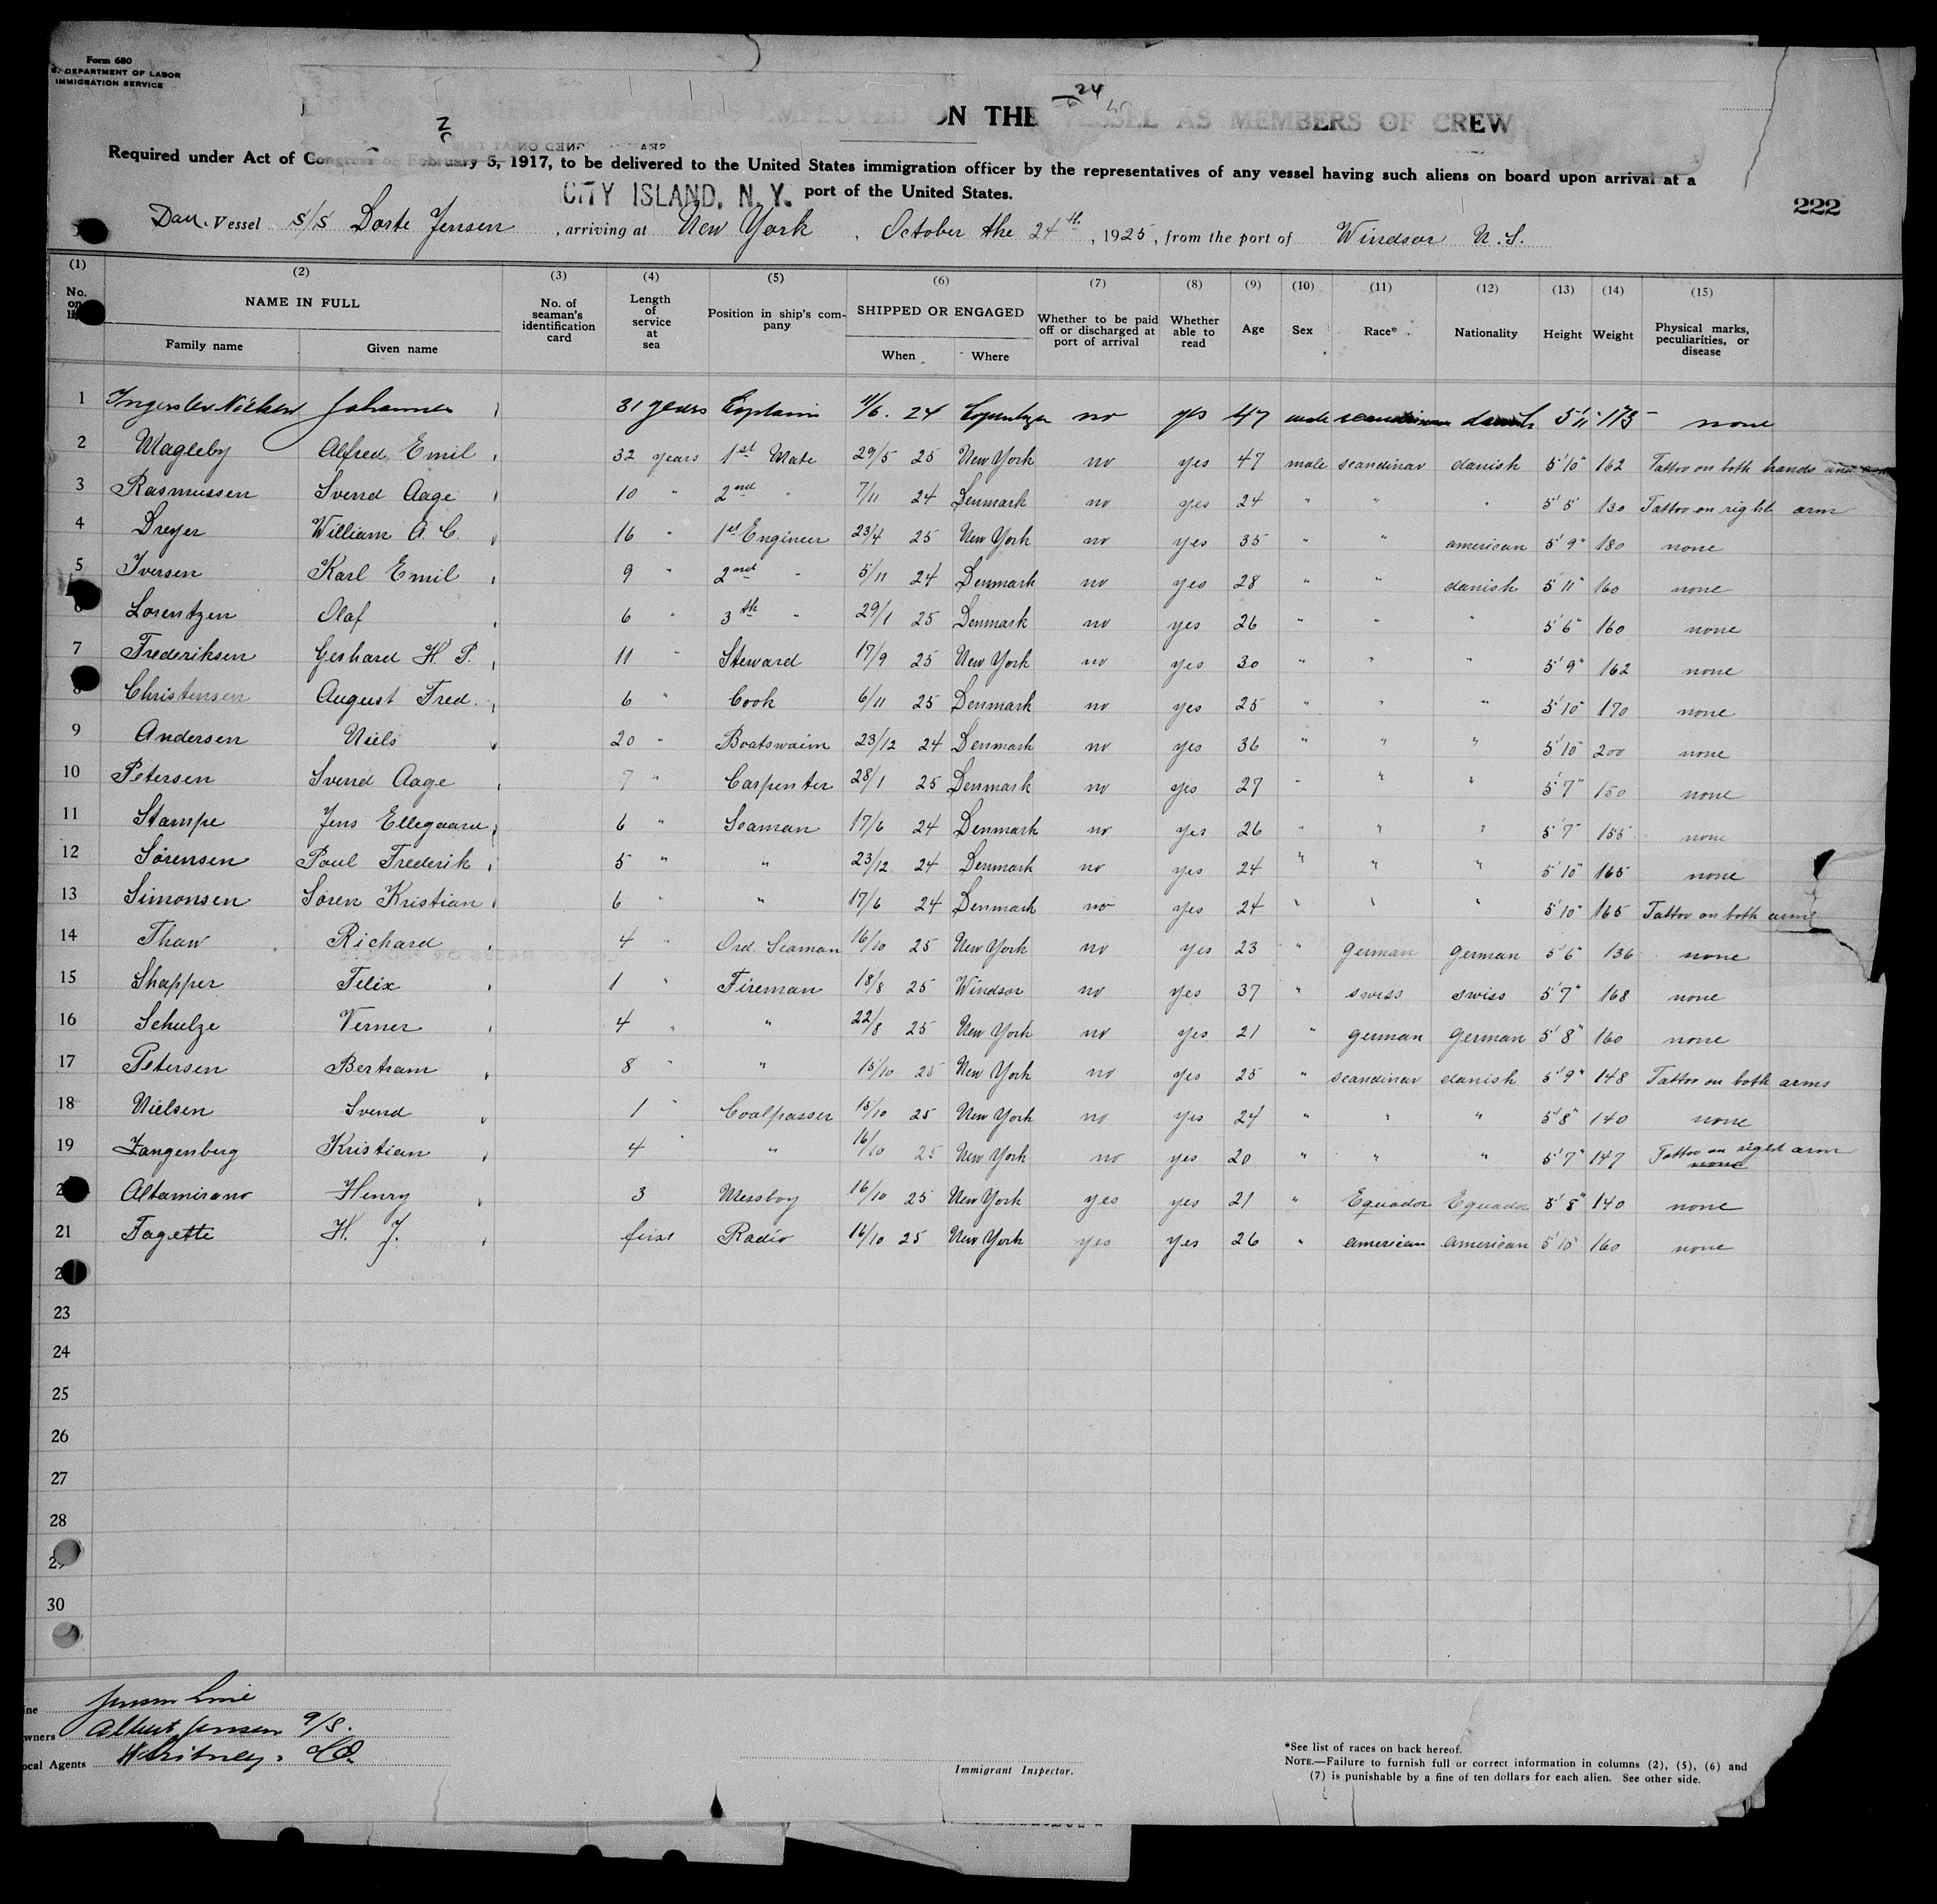 Form 680
S. DEPARTMENT OF LABOR
IMMIGRATION SERVICE
24
ON THE VESSEL AS MEMBERS OF CREW
Required under Act of Congress of February 5, 1917, to be delivered to the United States immigration officer by the representatives of any vessel having such aliens on board upon arrival at a
CITY ISLAND, N. Y. port of the United States.
222
Dan. Vessel s/s Dorte Jensen, arriving at New York, October the 24th, 1925, from the port of Windsor N.S.
(1) (2) (3) (4) (5) (6) (7) (8) (9) (10) (11) (12) (13) (14) (15)
No. on NAME IN FULL No. of seaman's identification card Length of service at sea Position in ship's company SHIPPED OR ENGAGED Whether to be paid off or discharged at port of arrival Whether able to read Age Sex Race* Nationality Height Weight Physical marks, peculiarities, or disease
Family name Given name When Where
1 Ingerslev Nielsen Johannes 31 years Captain 1/6. 24 Copenhagen no yes 47 male scandinavian danish 5'11" 175 none
2 Magleby Alfred Emil 32 years 1st Mate 29/5 25 New York no yes 47 male scandinav danish 5'10" 162 Tattoo on both hands
3 Rasmussen Svend Aage 10 " 2nd " 7/11 24 Denmark no yes 24 " " " 5'5" 130 Tattoo on right arm
4 Dreyer William A. C. 16 " 1st Engineer 23/4 25 New York no yes 35 " " american 5'9" 180 none
5 Iversen Karl Emil 9 " 2nd " 5/11 24 Denmark no yes 28 " " danish 5'11" 160 none
6 Lorentzen Olaf 6 " 3th " 29/1 25 Denmark no yes 26 " " " 5'6" 160 none
7 Frederiksen Gerhard H. P. 11 " Steward 17/9 25 New York no yes 30 " " " 5'9" 162 none
8 Christensen August Fred. 6 " Cook 6/11 25 Denmark no yes 25 " " " 5'10" 170 none
9 Andersen Niels 20 " Boatswain 23/12 24 Denmark no yes 36 " " " 5'10" 200 none
10 Petersen Svend Aage 7 " Carpenter 28/1 25 Denmark no yes 27 " " " 5'7" 150 none
11 Stampe Jens Ellegaard 6 " Seaman 17/6 24 Denmark no yes 26 " " " 5'7" 155 none
12 Sörensen Poul Frederik 5 " " 23/12 24 Denmark no yes 24 " " " 5'10" 165 none
13 Simonsen Sören Kristian 6 " " 17/6 24 Denmark no yes 24 " " " 5'10" 165 Tattoo on both arms
14 Thaw Richard 4 " Ord. Seaman 16/10 25 New York no yes 23 " german german 5'6" 136 none
15 Shapper Felix 1 " Fireman 18/8 25 Windsor no yes 37 " swiss swiss 5'7" 168 none
16 Schulze Verner 4 " " 22/8 25 New York no yes 21 " german german 5'8" 160 none
17 Petersen Bertram 8 " " 15/10 25 New York no yes 25 " scandinav danish 5'9" 148 Tattoo on both arms
18 Nielsen Svend 1 " Coalpasser 15/10 25 New York no yes 24 " " " 5'8" 140 none
19 Langenberg Kristian 4 " " 16/10 25 New York no yes 20 " " " 5'7" 147 Tattoo on right arm none
2 Altamirano Henry 3 Messboy 16/10 25 New York yes yes 21 " Equador Equador 5'8" 140 none
21 Fagette H. J. first Radio 16/10 25 New York yes yes 26 " american american 5'10" 160 none
2
23
24
25
26
27
28
29
30
ine Jensen Line
wners Albert Jensen a/s.
ocal Agents Whitney & Co.
Immigrant Inspector.
*See list of races on back hereof.
NOTE.—Failure to furnish full or correct information in columns (2), (5), (6) and
(7) is punishable by a fine of ten dollars for each alien. See other side.